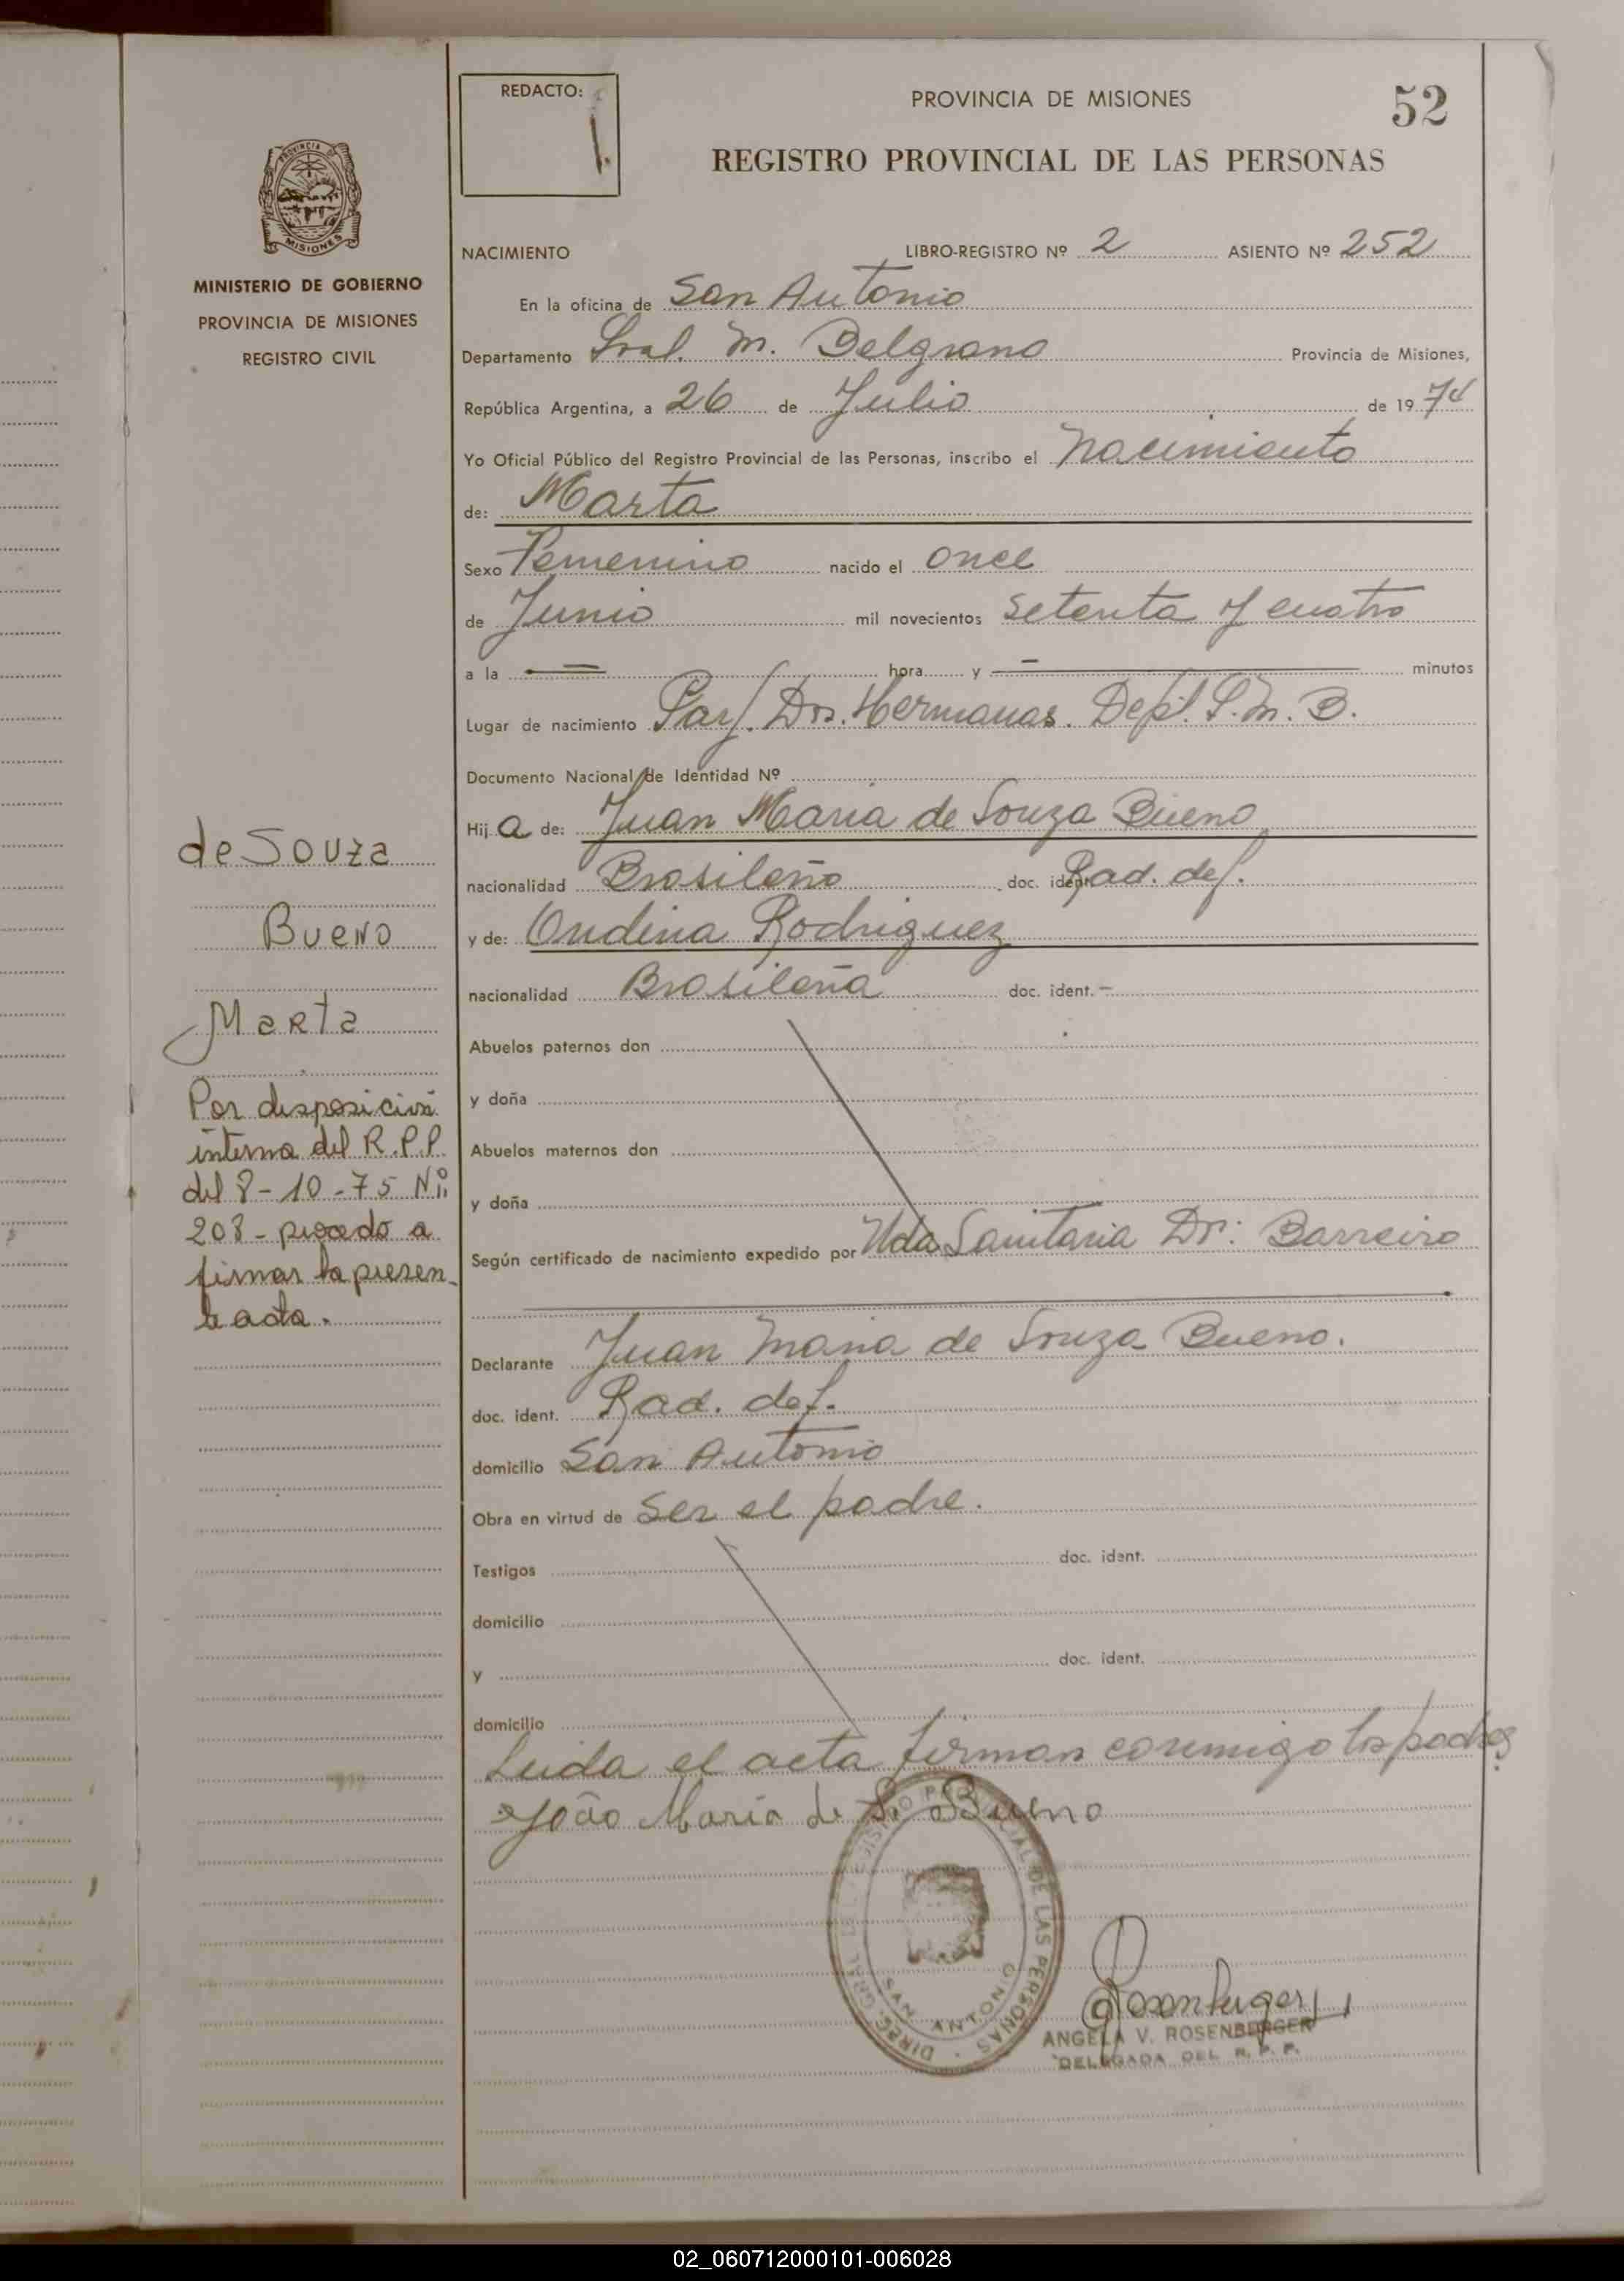 REDACTO:
PROVINCIA DE MISIONES
52
REGISTRO PROVINCIAL DE LAS PERSONAS
PROVINCIA DE
MISIONES
MINISTERIO DE GOBIERNO
PROVINCIA DE MISIONES
REGISTRO CIVIL
NACIMIENTO LIBRO-REGISTRO Nº 2 ASIENTO Nº 252
En la oficina de San Antonio
Departamento Gral. M. Belgrano Provincia de Misiones,
República Argentina, a 26 de Julio de 1974
Yo Oficial Público del Registro Provincial de las Personas, inscribo el Nacimiento
de: Marta
Sexo Femenino nacido el once
de Junio mil novecientos setenta y cuatro
a la — hora y — minutos
Lugar de nacimiento Par. Dos. Hermanas. Dept. G. M. B.
Documento Nacional de Identidad Nº
Hija de: Juan Maria de Souza Bueno
nacionalidad Brasileño doc. ident. Rad. def.
y de: Ondina Rodriguez
nacionalidad Brasileña doc. ident. –
Abuelos paternos don
y doña
Abuelos maternos don
y doña
Según certificado de nacimiento expedido por Uda Sanitaria Dr: Barreiro
Declarante Juan Maria de Souza Bueno.
doc. ident. Rad. def.
domicilio San Antonio
Obra en virtud de Ser el padre.
Testigos doc. ident.
domicilio
y doc. ident.
domicilio
Leida el acta firman conmigo los padres
João Maria de S. Bueno
de Souza
Bueno
Marta
Por disposición
interna del R.P.P.
del 8-10-75 Nº
208 - procedo a
firmar la presen-
te acta.
DIREC. GRAL. DEL REGISTRO PROVINCIAL DE LAS PERSONAS
SAN ANTONIO
Rosenberger
ANGELA V. ROSENBERGER
DELEGADA DEL R. P. P.
02_060712000101-006028